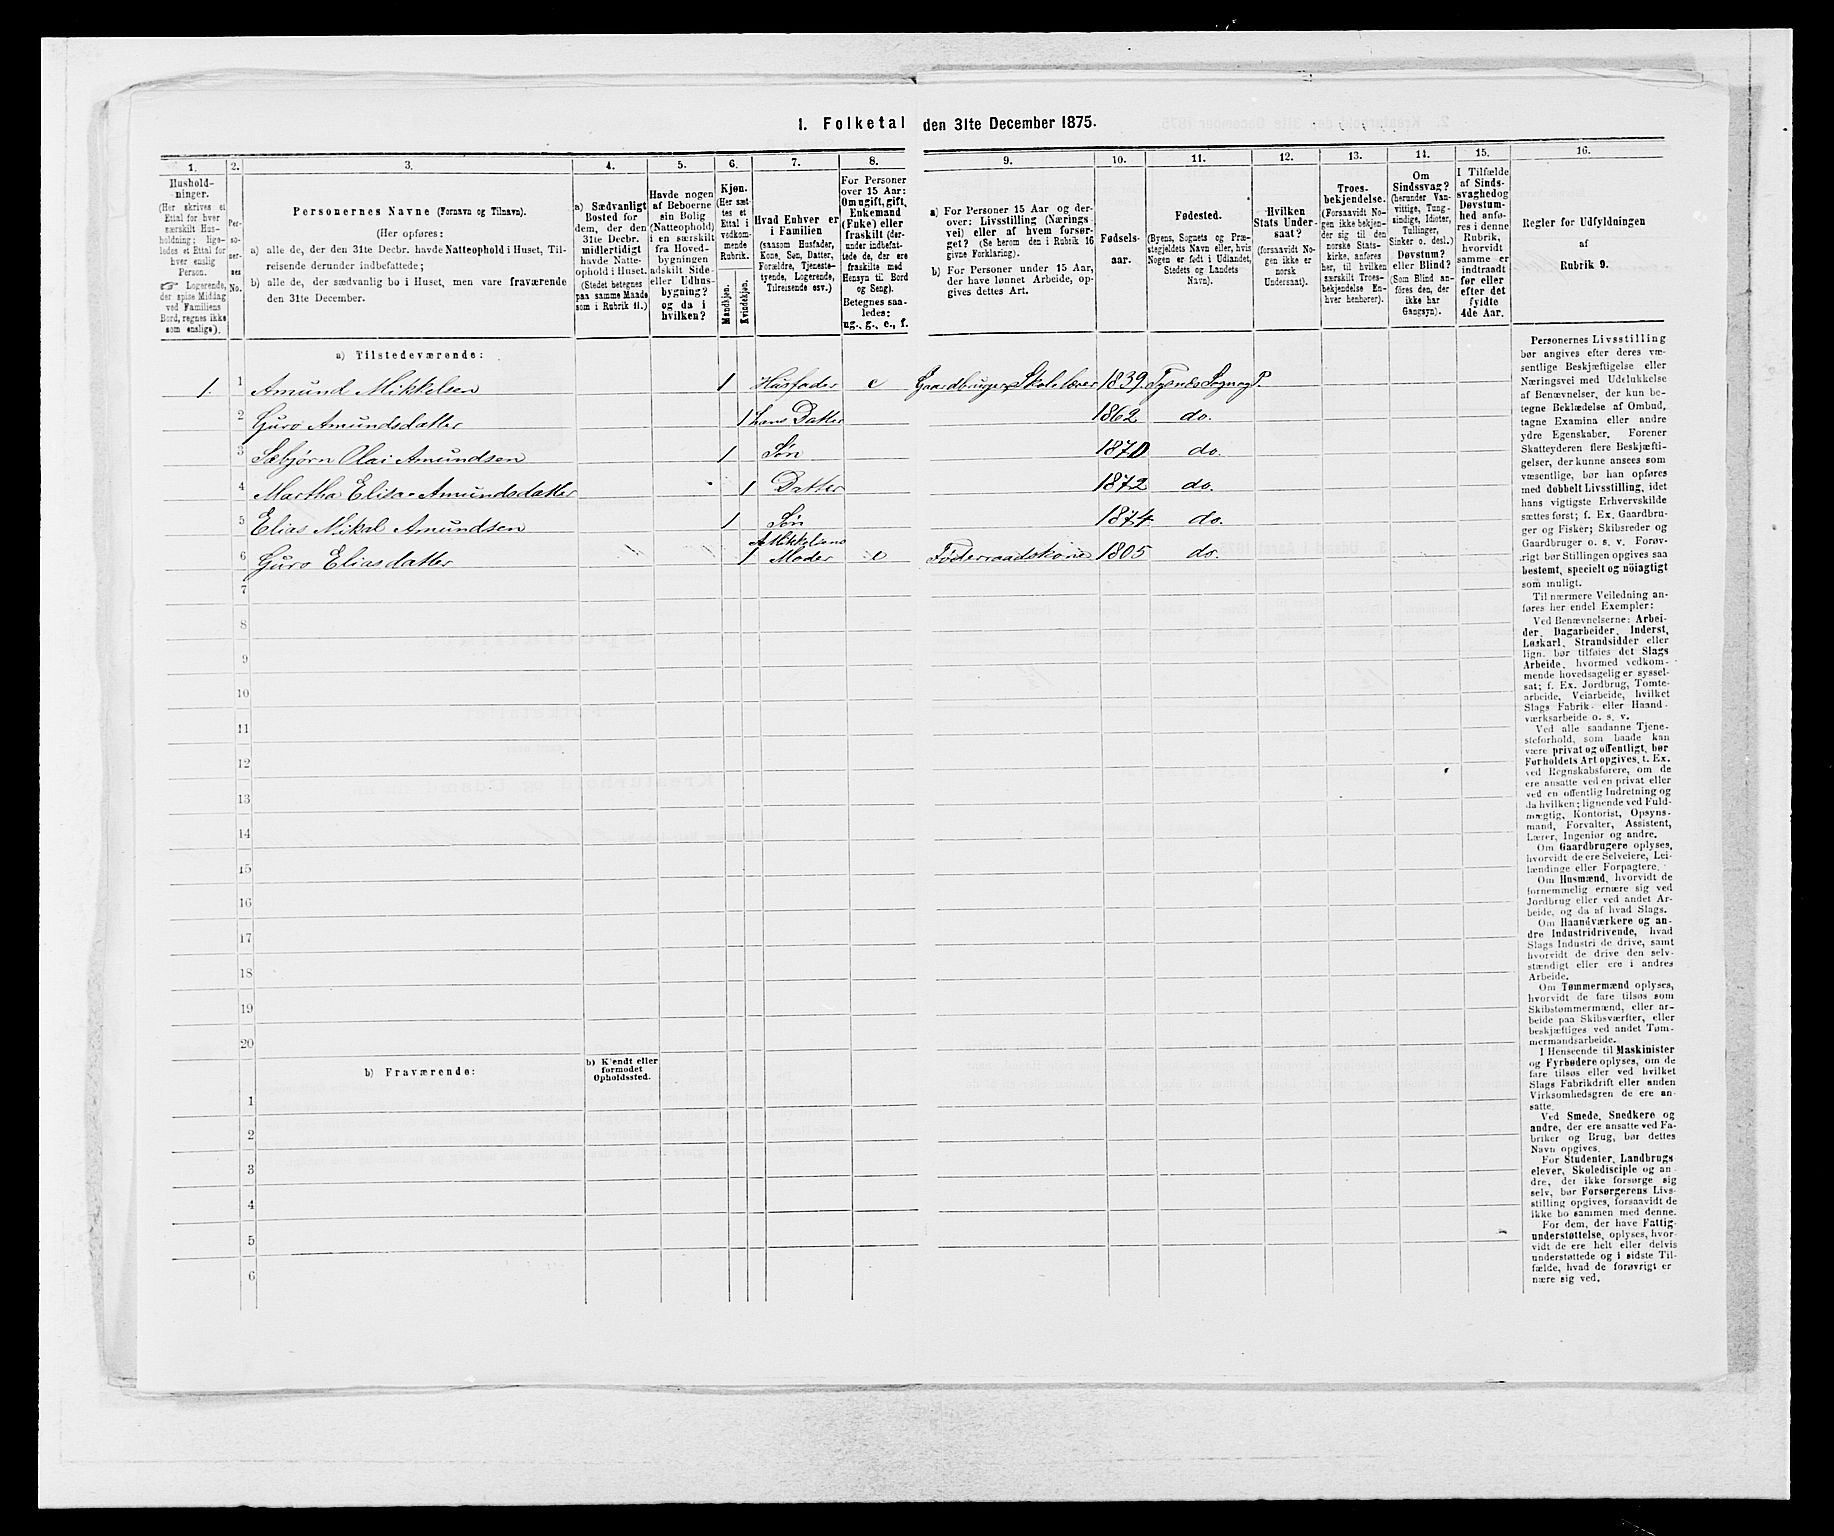 1. Folketal den 31te December 1875.
1. 2. 3. 4. 5. 6. 7. 8. 9. 10. 11. 12. 13. 14. 15. 16.
Hushold-
ninger.
(Her skrives et
Ettal for hver
særskilt Hus-
holdning; lige-
ledes et Ettal for
hver enslig
Person.
☞ Logerende,
der spise Middag
ved Familiens
Bord, regnes ikke
som enslige).
Per-
so-
ner-
nes
No.
Personernes Navne (Fornavn og Tilnavn).
(Her opføres:
a) alle de, der den 31te Decbr. havde Natteophold i Huset, Til-
reisende derunder indbefattede;
b) alle de, der sædvanlig bo i Huset, men vare fraværende
den 31te December.
a) Sædvanligt
Bosted for
dem, der den
31te Decbr.
midlertidigt
havde Natte-
ophold i Huset.
(Stedet betegnes
paa samme Maade
som i Rubrik 11.)
Havde nogen
af Beboerne
sin Bolig
(Natteophold)
i en særskilt
fra Hoved-
bygningen
adskilt Side-
eller Udhus-
bygning?
og da i
hvilken?
Kjøn.
(Her sæt-
tes et
Ettal i
vedkom-
mende
Rubrik.
Mandkjøn.
Kvindekjøn.
Hvad Enhver er
i Familien
(saasom Husfader,
Kone, Søn, Datter,
Forældre, Tjeneste-
tyende, Logerende,
Tilreisende osv.)
For Personer
over 15 Aar:
Om ugift, gift,
Enkemand
(Enke) eller
fraskilt (der-
under indbefat-
tede de, der ere
fraskilte med
Hensyn til Bord
og Seng).
Betegnes saa-
ledes:
ug., g., e., f.
a) For Personer 15 Aar og der-
over: Livsstilling (Nærings-
vei) eller af hvem forsør-
get? (Se herom den i Rubrik 16
givne Forklaring).
b) For Personer under 15 Aar,
der have lønnet Arbeide, op-
gives dettes Art.
Fødsels-
aar.
Fødested.
(Byens, Sognets og Præ-
stegjeldets Navn eller, hvis
Nogen er født i Udlandet,
Stedets og Landets
Navn).
Hvilken
Stats Under-
saat?
(forsaavidt No-
gen ikke er
norsk
Undersaat).
Troes-
bekjendelse.
(Forsaavidt No-
gen ikke bekjen-
der sig til den
norske Stats-
kirke, anføres
her, til hvilken
særskilt Troes-
bekjendelse En-
hver henhører).
Om
Sindssvag?
(herunder Van-
vittige, Tung-
sindige, Idioter,
Tullinger,
Sinker o. desl.)
Døvstum?
eller Blind?
(Som Blind an-
føres den, der
ikke har
Gangsyn).
I Tilfælde
af Sinds-
svaghed og
Døvstum-
hed anfø-
res i denne
Rubrik,
hvorvidt
samme er
indtraadt
før eller
efter det
fyldte
4de Aar.
Regler for Udfyldningen
af
Rubrik 9.
a) Tilstedeværende:
1. 1 Amund Mikkelsen 1 Husfader e Gaardbruger, Skolelærer 1839. Tysnæs Sogn og P.
2 Guro Amundsdatter 1 hans Datter 1862 do.
3 Sæbjørn Olai Amundsen 1 Søn 1870 do.
4 Martha Elisa Amundsdatter 1 Datter 1872 do.
5 Elias Mikal Amundsen 1 Søn 1874 do.
A. Mikkelsens
6 Guro Eliasdatter 1 Moder e Föderaadskone 1805 do.
7
8
9
10
11
12
13
14
15
16
17
18
19
20
b) Fraværende:
b) Kjendt eller
formodet
Opholdssted.
1
2
3
4
5
6
Personernes Livsstilling
bør angives efter deres væ-
sentlige Beskjæftigelse eller
Næringsvei med Udelukkelse
af Benævnelser, der kun be-
tegne Beklædelse af Ombud,
tagne Examina eller andre
ydre Egenskaber. Forener
Skatteyderen flere Beskjæfti-
gelser, der kunne ansees som
væsentlige, bør han opføres
med dobbelt Livsstilling, idet
hans vigtigste Erhvervskilde
sættes først; f. Ex. Gaardbru-
ger og Fisker; Skibsreder og
Gaardbruger o. s. v. Forøv-
rigt bør Stillingen opgives saa
bestemt, specielt og nöiagtigt
som muligt.
Til nærmere Veiledning an-
føres her endel Exempler:
Ved Benævnelserne: Arbei-
der, Dagarbeider, Inderst,
Løskarl, Strandsidder eller
lign. bør tilføies det Slags
Arbeide, hvormed vedkom-
mende hovedsagelig er syssel-
sat; f. Ex. Jordbrug, Tomte-
arbeide, Veiarbeide, hvilket
Slags Fabrik- eller Haand-
værksarbeide o. s. v.
Ved alle saadanne Tjene-
steforhold, som baade kan
være privat og offentligt, bør
Forholdets Art opgives, t. Ex.
ved Regnskabsførere, om de
ere ansatte ved en privat eller
ved en offentlig Indretning og
da hvilken; lignende ved Fuld-
mægtig, Kontorist, Opsyns-
mand, Forvalter, Assistent,
Lærer, Ingeniør og andre.
Om Gaardbrugere oplyses,
hvorvidt de ere Selveiere, Lei-
lændinge eller Forpagtere.
Om Husmænd, hvorvidt de
fornemmelig ernære sig ved
Jordbrug eller ved andet Ar-
beide, og da af hvad Slags.
Om Haandværkere og an-
dre Industridrivende, hvad
Slags Industri de drive, samt
hvorvidt de drive den selv-
stændigt eller ere i andres
Arbeide.
Om Tømmermænd oplyses,
hvorvidt de fare tilsøs som
Skibstømmermænd, eller ar-
beide paa Skibsværfter, eller
beskjæftiges ved andet Tøm-
mermandsarbeide.
I Henseende til Maskinister
og Fyrbødere oplyses, om de
fare tilsøs eller ved hvilket
Slags Fabrikdrift eller anden
Virksomhedsgren de ere an-
satte.
Ved Smede, Snedkere og
andre, der ere ansatte ved Fa-
briker og Brug, bør dettes
Navn opgives.
For Studenter, Landbrugs
elever, Skoledisciple og an-
dre, der ikke forsørge sig
selv, bør Forsørgerens Livs-
stilling opgives, forsaavidt de
ikke bo sammen med denne.
For dem, der have Fattig-
understøttelse, oplyses, hvor-
vidt de ere helt eller delvis
understøttede og i sidste Til-
fælde, hvad de forøvrigt er
nære sig ved.